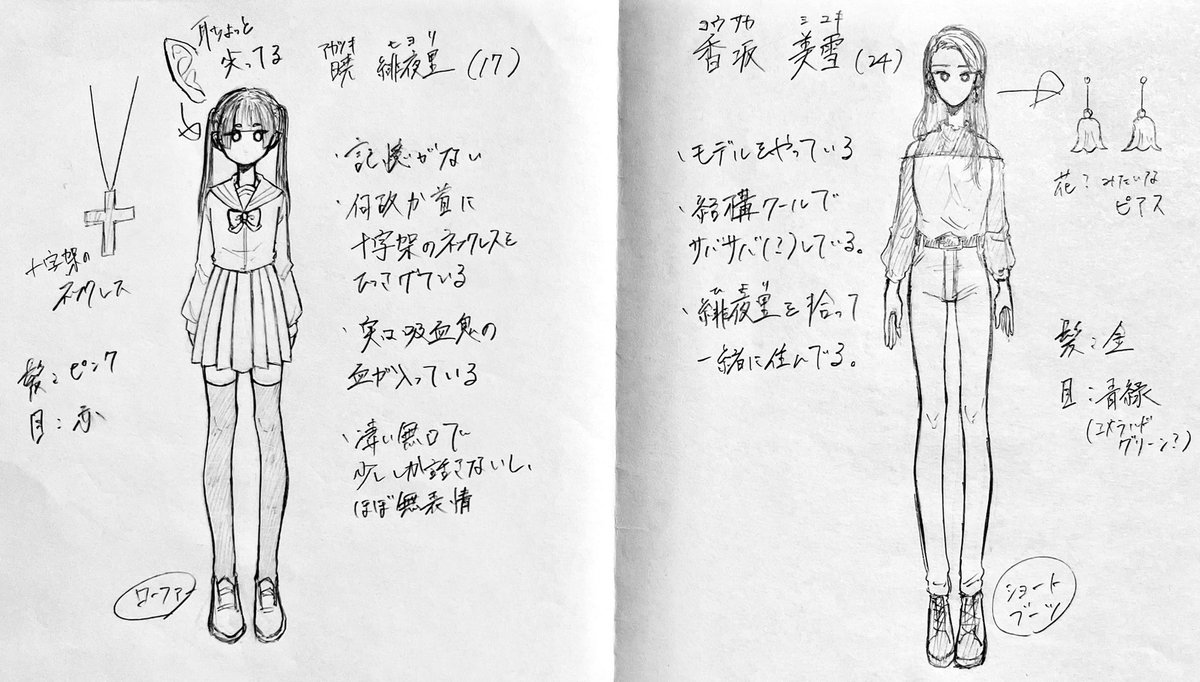 耳ちょっと
尖ってる
アカツキ ヒヨリ
暁 緋夜里 (17)
・記憶がない
・何故か首に
十字架のネックレスを
ひっさげている
・実は吸血鬼の
血が入っている
・凄い無口で
少ししか話さないし、
ほぼ無表情
十字架の
ネックレス
髪:ピンク
目:赤
ローファー
コウサカ ミユキ
香坂 美雪 (24)
・モデルをやっている
・結構クールで
サバサバ(?)している。
ひより
・緋夜里を拾って
一緒に住んでる。
花?みたいな
ピアス
髪:金
目:青緑
(エメラルド
グリーン?)
ショート
ブーツ